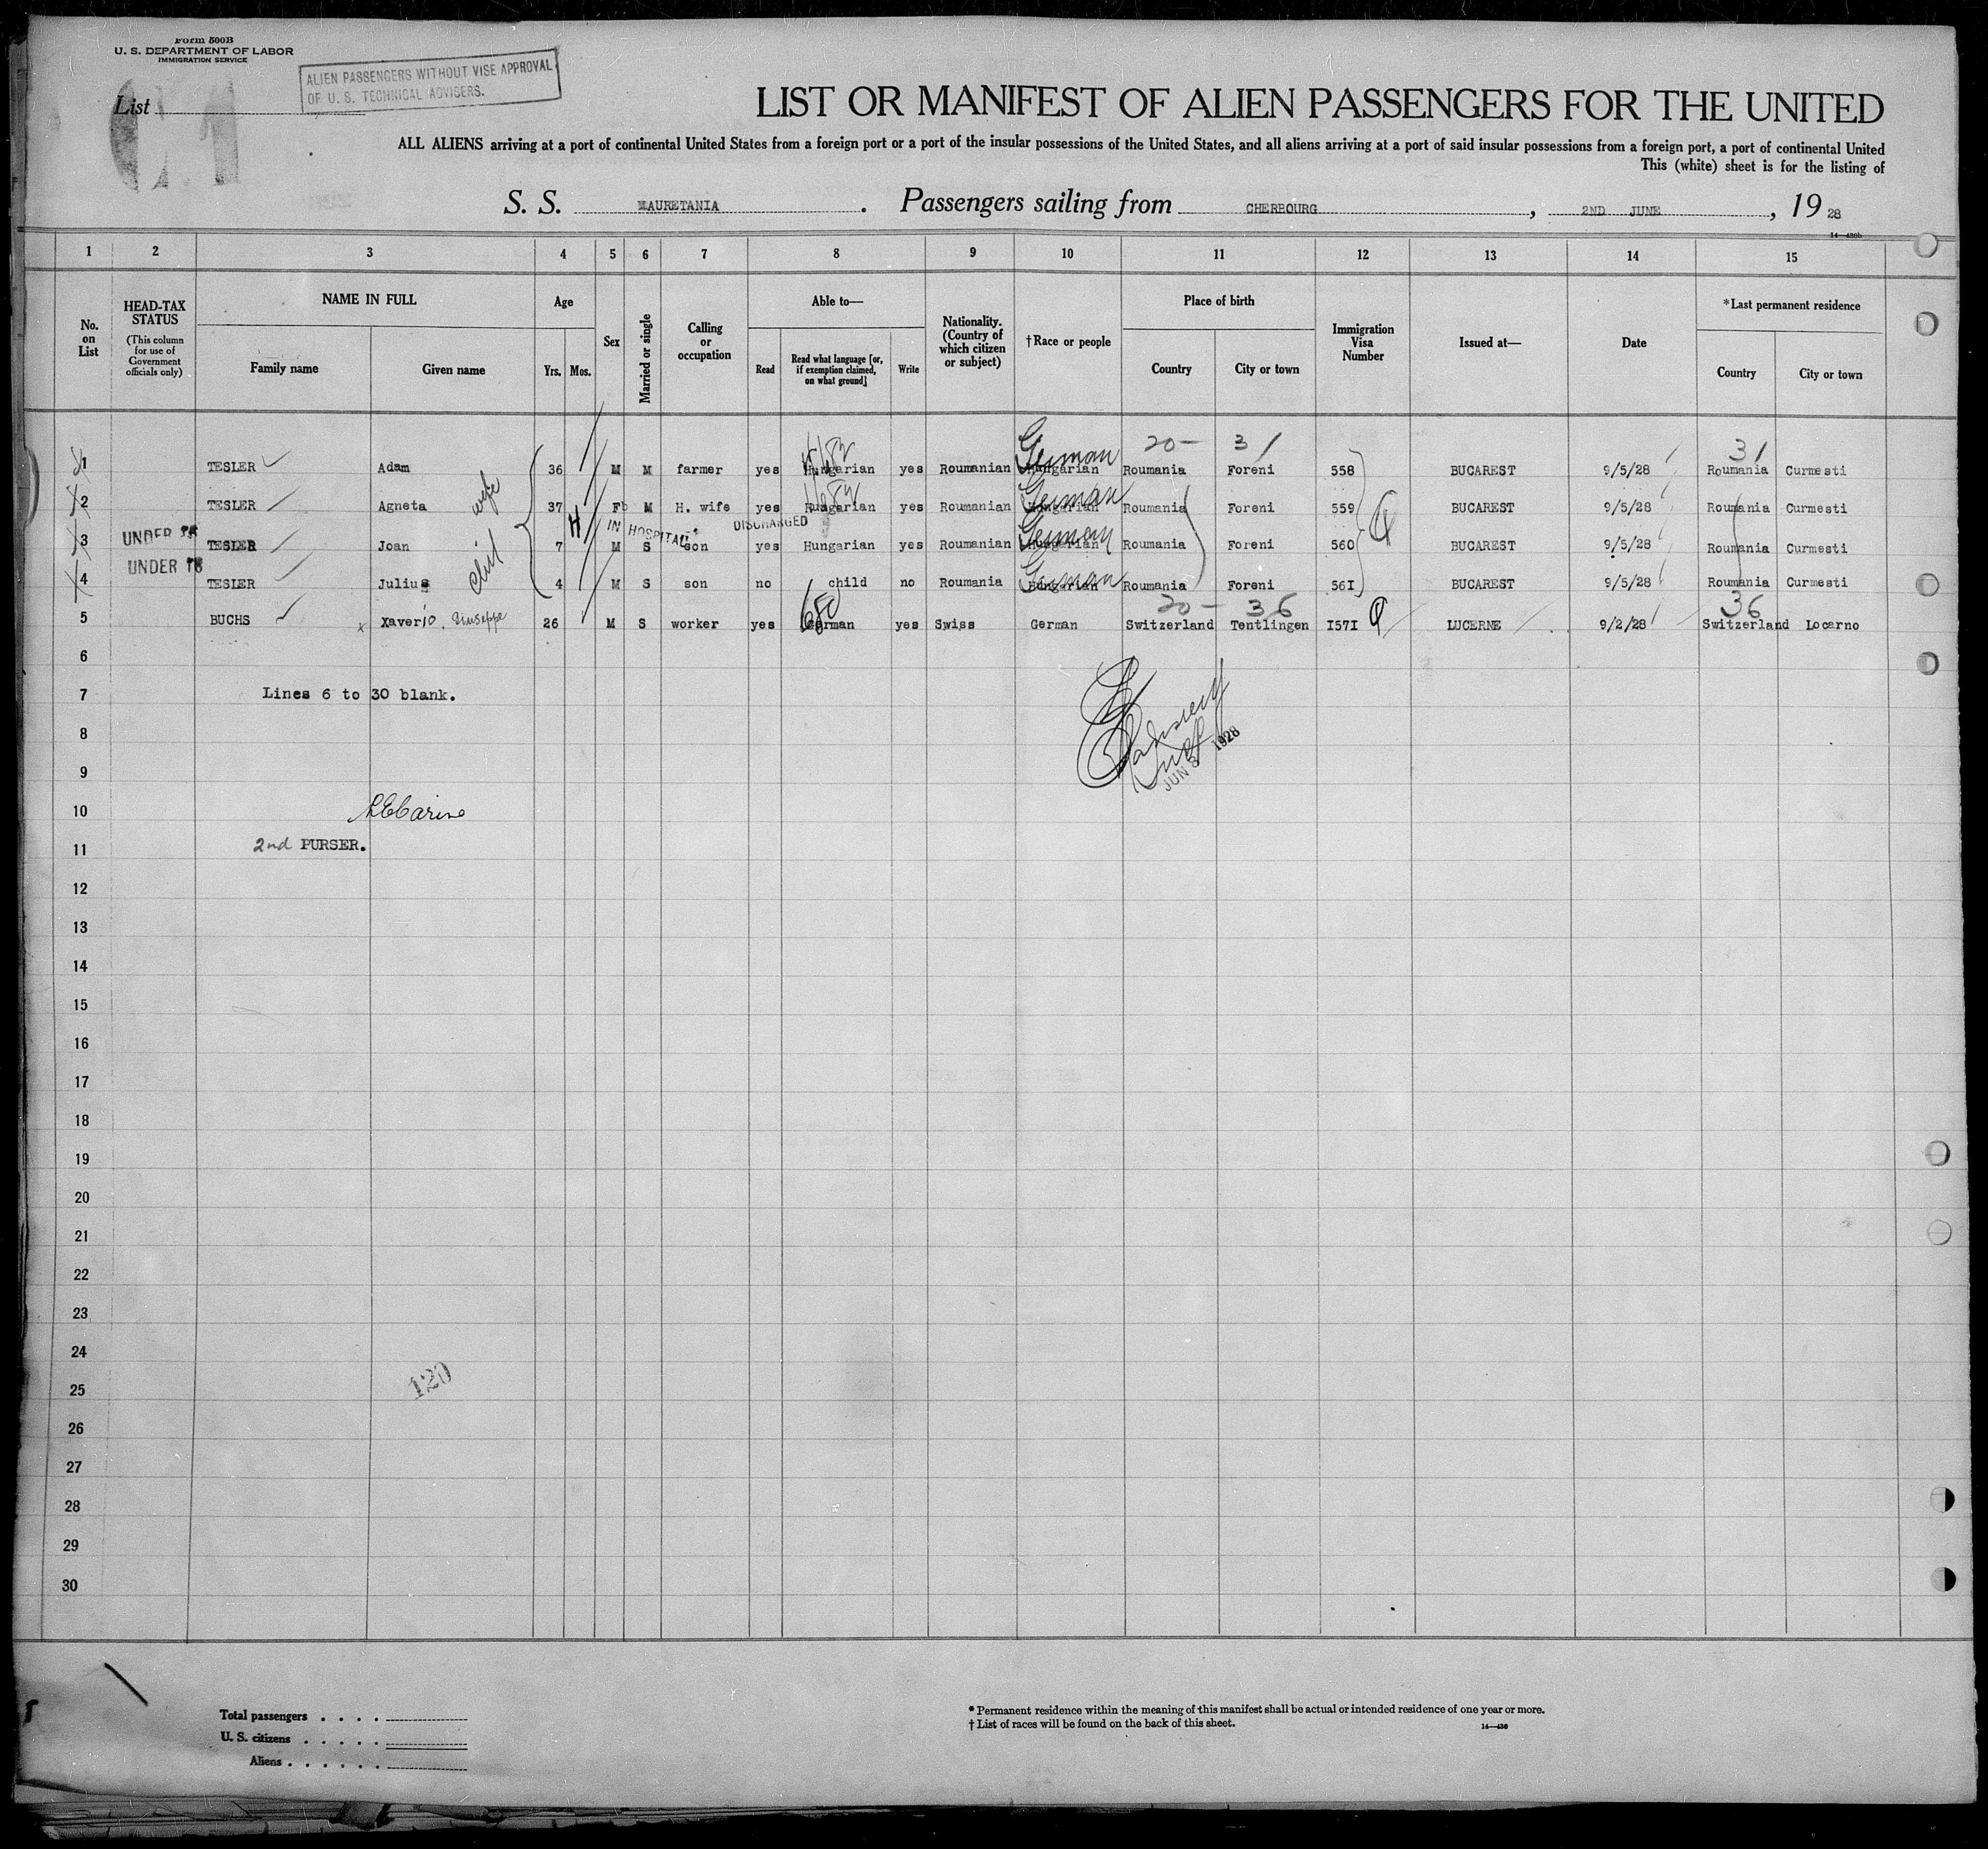 Form 500B
U. S. DEPARTMENT OF LABOR
IMMIGRATION SERVICE
ALIEN PASSENGERS WITHOUT VISE APPROVAL
OF U. S. TECHNICAL ADVISERS.
List
LIST OR MANIFEST OF ALIEN PASSENGERS FOR THE UNITED
ALL ALIENS arriving at a port of continental United States from a foreign port or a port of the insular possessions of the United States, and all aliens arriving at a port of said insular possessions from a foreign port, a port of continental United
This (white) sheet is for the listing of
S. S. MAURETANIA. Passengers sailing from CHERBOURG, 2ND JUNE, 1928
14—430b
1 2 3 4 5 6 7 8 9 10 11 12 13 14 15
No. on List
HEAD-TAX STATUS (This column for use of Government officials only)
NAME IN FULL
Family name Given name
Age
Yrs. Mos.
Sex
Married or single
Calling or occupation
Able to—
Read
Read what language [or, if exemption claimed, on what ground]
Write
Nationality. (Country of which citizen or subject)
†Race or people
Place of birth
Country City or town
Immigration Visa Number
Issued at—
Date
*Last permanent residence
Country City or town
German 20- 31 31
1 TESLER Adam 36 M M farmer yes Hungarian yes Roumanian Hungarian Roumania Foreni 558 BUCAREST 9/5/28 Roumania Curmesti
wife German
2 TESLER Agneta 37 F M H. wife yes Hungarian yes Roumanian Hungarian Roumania Foreni 559 BUCAREST 9/5/28 Roumania Curmesti
UNDER 16 H IN HOSPITAL DISCHARGED German
3 TESLER Joan 7 M S son yes Hungarian yes Roumanian Hungarian Roumania Foreni 560 BUCAREST 9/5/28 Roumania Curmesti
UNDER 16 German
4 TESLER Julius 4 M S son no child no Roumania Hungarian Roumania Foreni 561 BUCAREST 9/5/28 Roumania Curmesti
20- 36 36
5 BUCHS x Xaverio, Giuseppe 26 M S worker yes German yes Swiss German Switzerland Tentlingen 1571 LUCERNE 9/2/28 Switzerland Locarno
6
7 Lines 6 to 30 blank.
8
JUN 8 1928
9
10
11 2nd PURSER.
12
13
14
15
16
17
18
19
20
21
22
23
24
120
25
26
27
28
29
30
Total passengers . . . .
U. S. citizens . . . . .
Aliens . . . . . .
* Permanent residence within the meaning of this manifest shall be actual or intended residence of one year or more.
† List of races will be found on the back of this sheet.
14—430